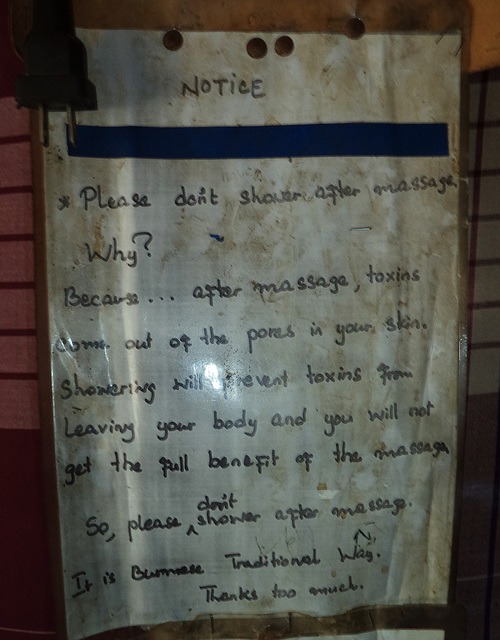 NOTICE
* Please don't shower after massage.
Why?
Because... after massage, toxins
come out of the pores in your skin.
Showering will prevent toxins from
leaving your body and you will not
get the full benefit of the massage
So, please don't shower after massage.
It is Burmese Traditional Way.
Thanks too much.